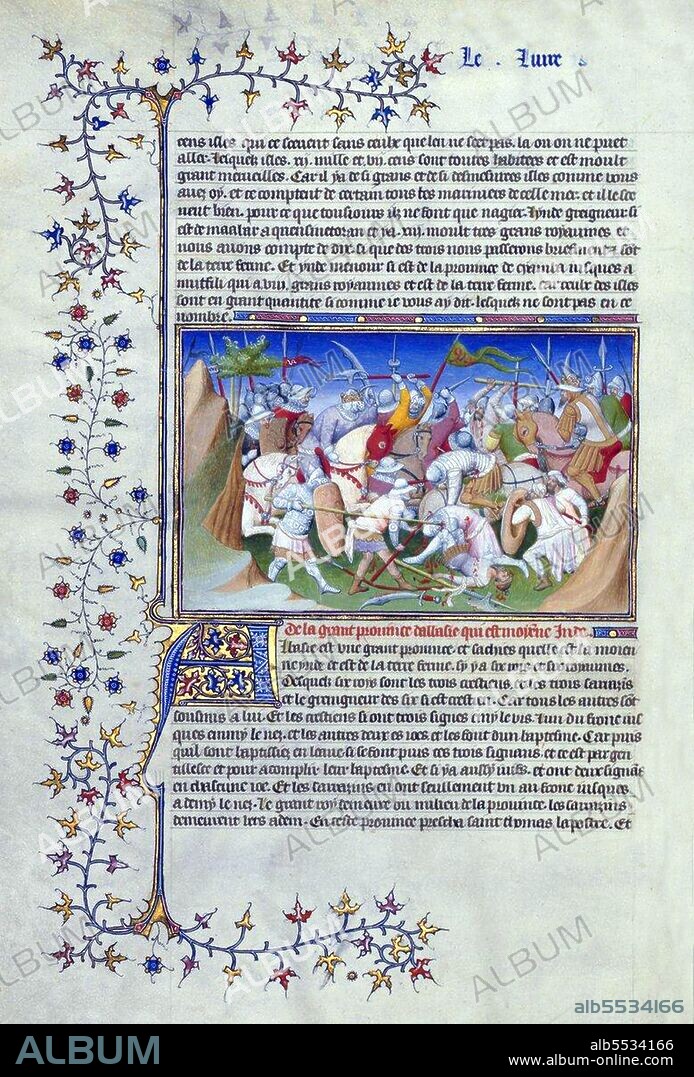 Le . liure
cens isles qui ce scevent sans ceulx que len ne scet pas la on on ne puet
aller. lesquex isles .xij. mille et .vij. cens sont toutes habitees et est moult
grant merveilles. Car il ya de si grans et de si desmesures isles comme vous
avez oy. et ce comptent de certain tous les mariniers de celle mer. et il le sce
uent bien. pour ce que tousiours ilz ne font que nagier. Lynde greigneur si
est de maabar a
moult tres grans royaumes. et
nous avons compte de dix. si que des trois nous passerons briefment
de la terre ferme. Et ynde menour si est de la province de iusques a
mutfili qui a .viij. grans royaumes et est de la terre ferme. des isles
sont en grant quantite si comme ie vous ay dit. lesquex ne sont pas en ce
nombre.
De la grant prouince dabasie qui est moyene Inde
Abasie est une grant prouince. et sachies quelle est la moien
ne ynde et est de la terre ferme. sy ya six roys et six royaumes.
Desquex six roys sont les trois crestiens et les trois sarrazins
et le greingneur des six si est crestien. Car tous les autres sont
soubmis a lui. Et les crestiens si ont trois signes emmy le vis. lun du front ius
ques emmy le nez. et les autres deux es ioes. et les font dun baptesme. Car puis
quil sont baptissiez en leaue si se font puis ces trois signaus. et ce est par gen
tillesce et pour acomplir leur baptesme. Et si ya aussy iuifs. et ont deux signaus
en chascune ioe. Et les sarrazins en ont seullement un au front iusques
a demy le nez. Le grant roy demeure ou milieu de la prouince. les sarrazins
demeurent vers aden. En ceste prouince prescha saint thomas lapostre. Et
ALBUM
alb5534166
ALBUM
alb5534166
www.album-online.com